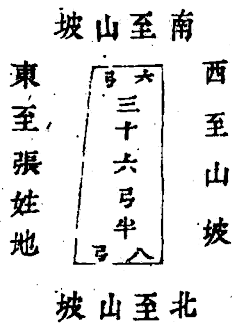 南至山坡
西至山坡
六弓
三十六弓半
八弓
東至張姓地
北至山坡